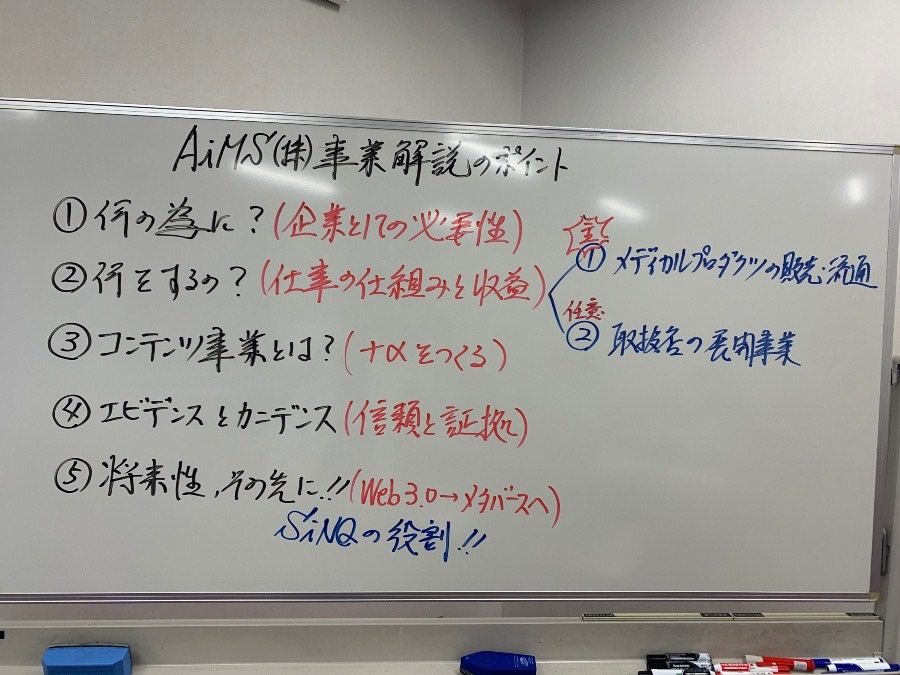 AiMS(株)事業解説のポイント
①何の為に?(企業としての必要性)
②何をするの?(仕事の仕組みと収益)
全て
①メディカルプロダクツの販売・流通
任意
②取扱店の展開事業
③コンテンツ事業とは?(+αをつくる)
④エビデンスとカニデンス(信頼と証拠)
⑤将来性,その先に!!(Web3.0→メタバースへ)
SiNQの役割!!